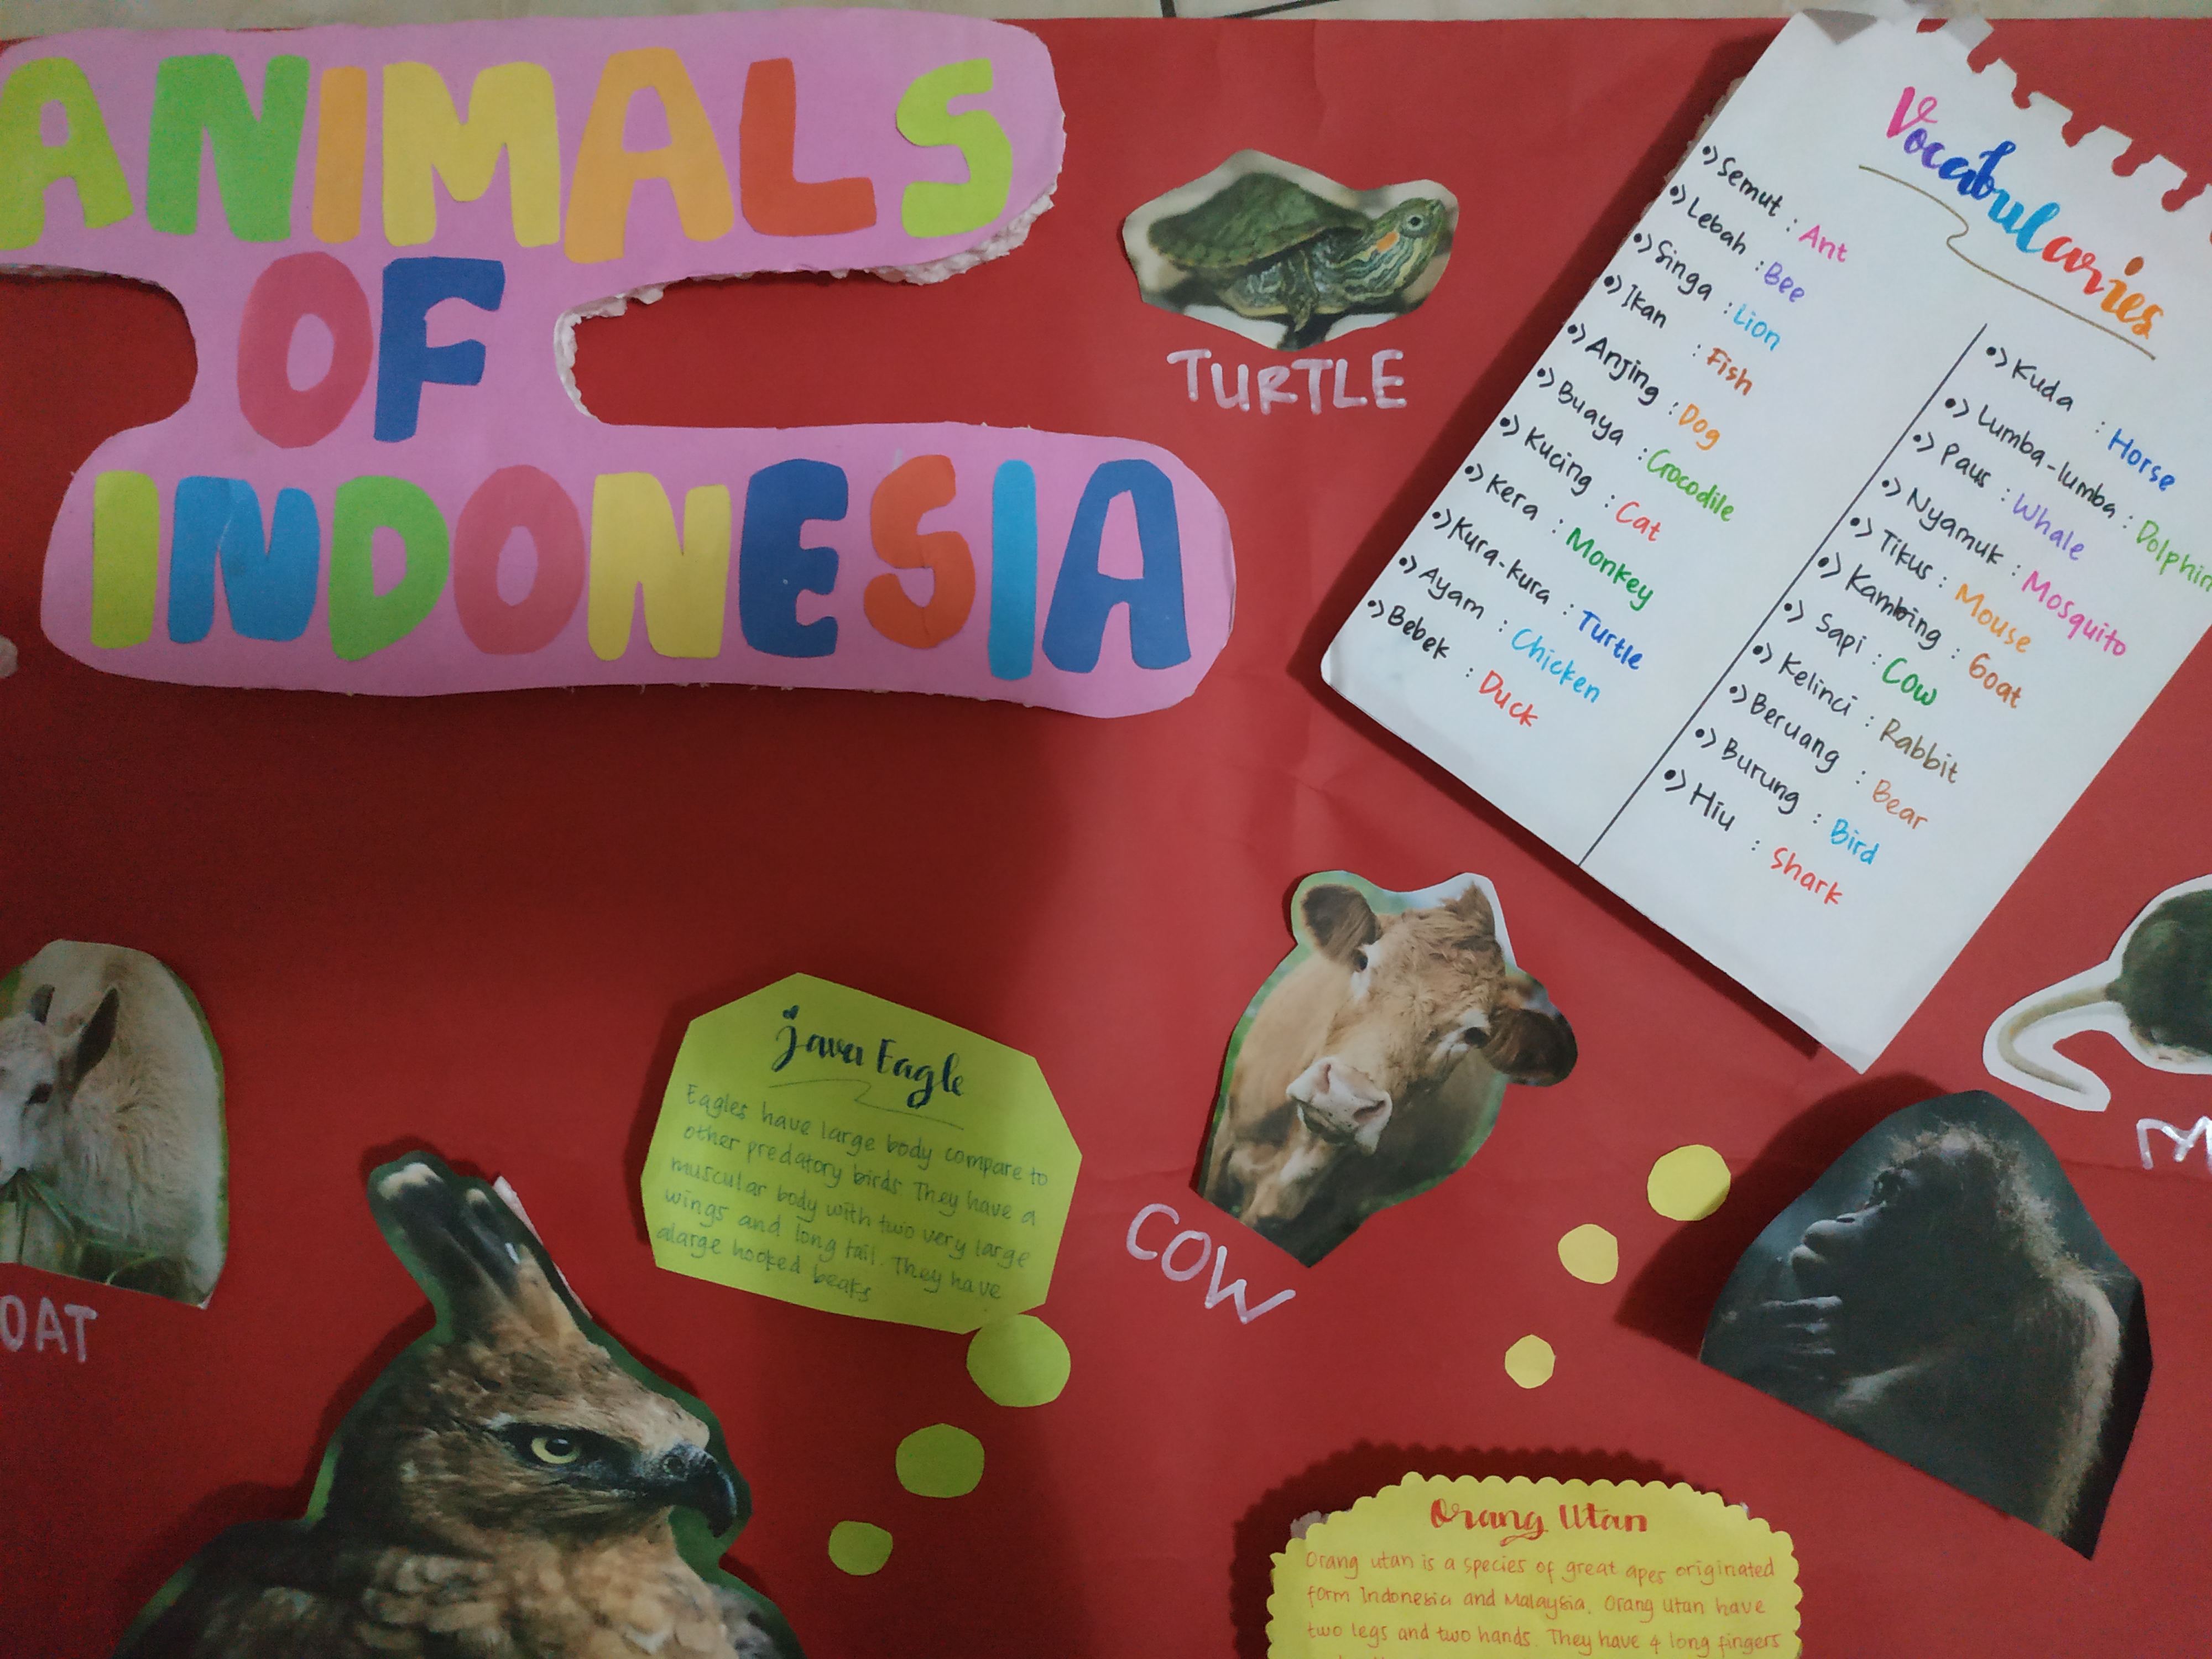 ANIMALS
OF
INDONESIA
TURTLE
Vocabularies
•> Semut : Ant
•> Lebah : Bee
•> Singa : Lion
•> Ikan : Fish
•> Anjing : Dog
•> Buaya : Crocodile
•> Kucing : Cat
•> Kera : Monkey
•> Kura-kura : Turtle
•> Ayam : Chicken
•> Bebek : Duck
•> Kuda : Horse
•> Lumba-lumba : Dolphin
•> Paus : Whale
•> Nyamuk : Mosquito
•> Tikus : Mouse
•> Kambing : Goat
•> Sapi : Cow
•> Kelinci : Rabbit
•> Beruang : Bear
•> Burung : Bird
•> Hiu : Shark
OAT
Java Eagle
Eagles have large body compare to
other predatory birds. They have a
muscular body with two very large
wings and long tail. They have
alarge hooked beaks
COW
M
Orang Utan
Orang utan is a species of great apes originated
form Indonesia and Malaysia. Orang Utan have
two legs and two hands. They have 4 long fingers